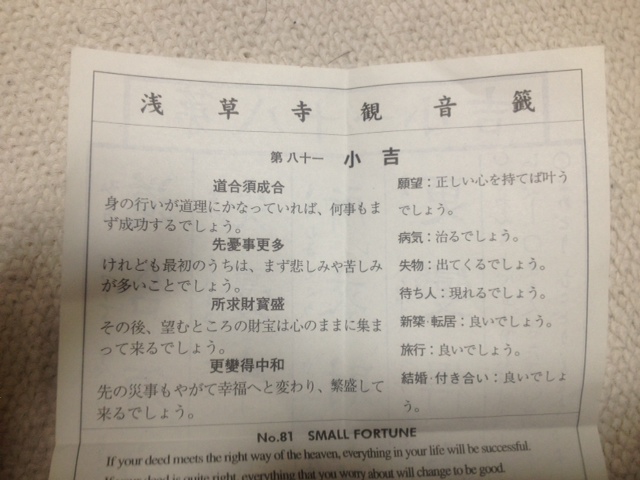 浅草寺観音籤
第八十一 小吉
道合須成合
身の行いが道理にかなっていれば、何事もま
ず成功するでしょう。
先憂事更多
けれども最初のうちは、まず悲しみや苦しみ
が多いことでしょう。
所求財寳盛
その後、望むところの財宝は心のままに集ま
って来るでしょう。
更變得中和
先の災事もやがて幸福へと変わり、繁盛して
来るでしょう。
願望：正しい心を持てば叶う
でしょう。
病気：治るでしょう。
失物：出てくるでしょう。
待ち人：現れるでしょう。
新築・転居：良いでしょう。
旅行：良いでしょう。
結婚・付き合い：良いでしょ
う。
No.81 SMALL FORTUNE
If your deed meets the right way of the heaven, everything in your life will be successful.
If your deed is quite right, everything that you worry about will change to be good.